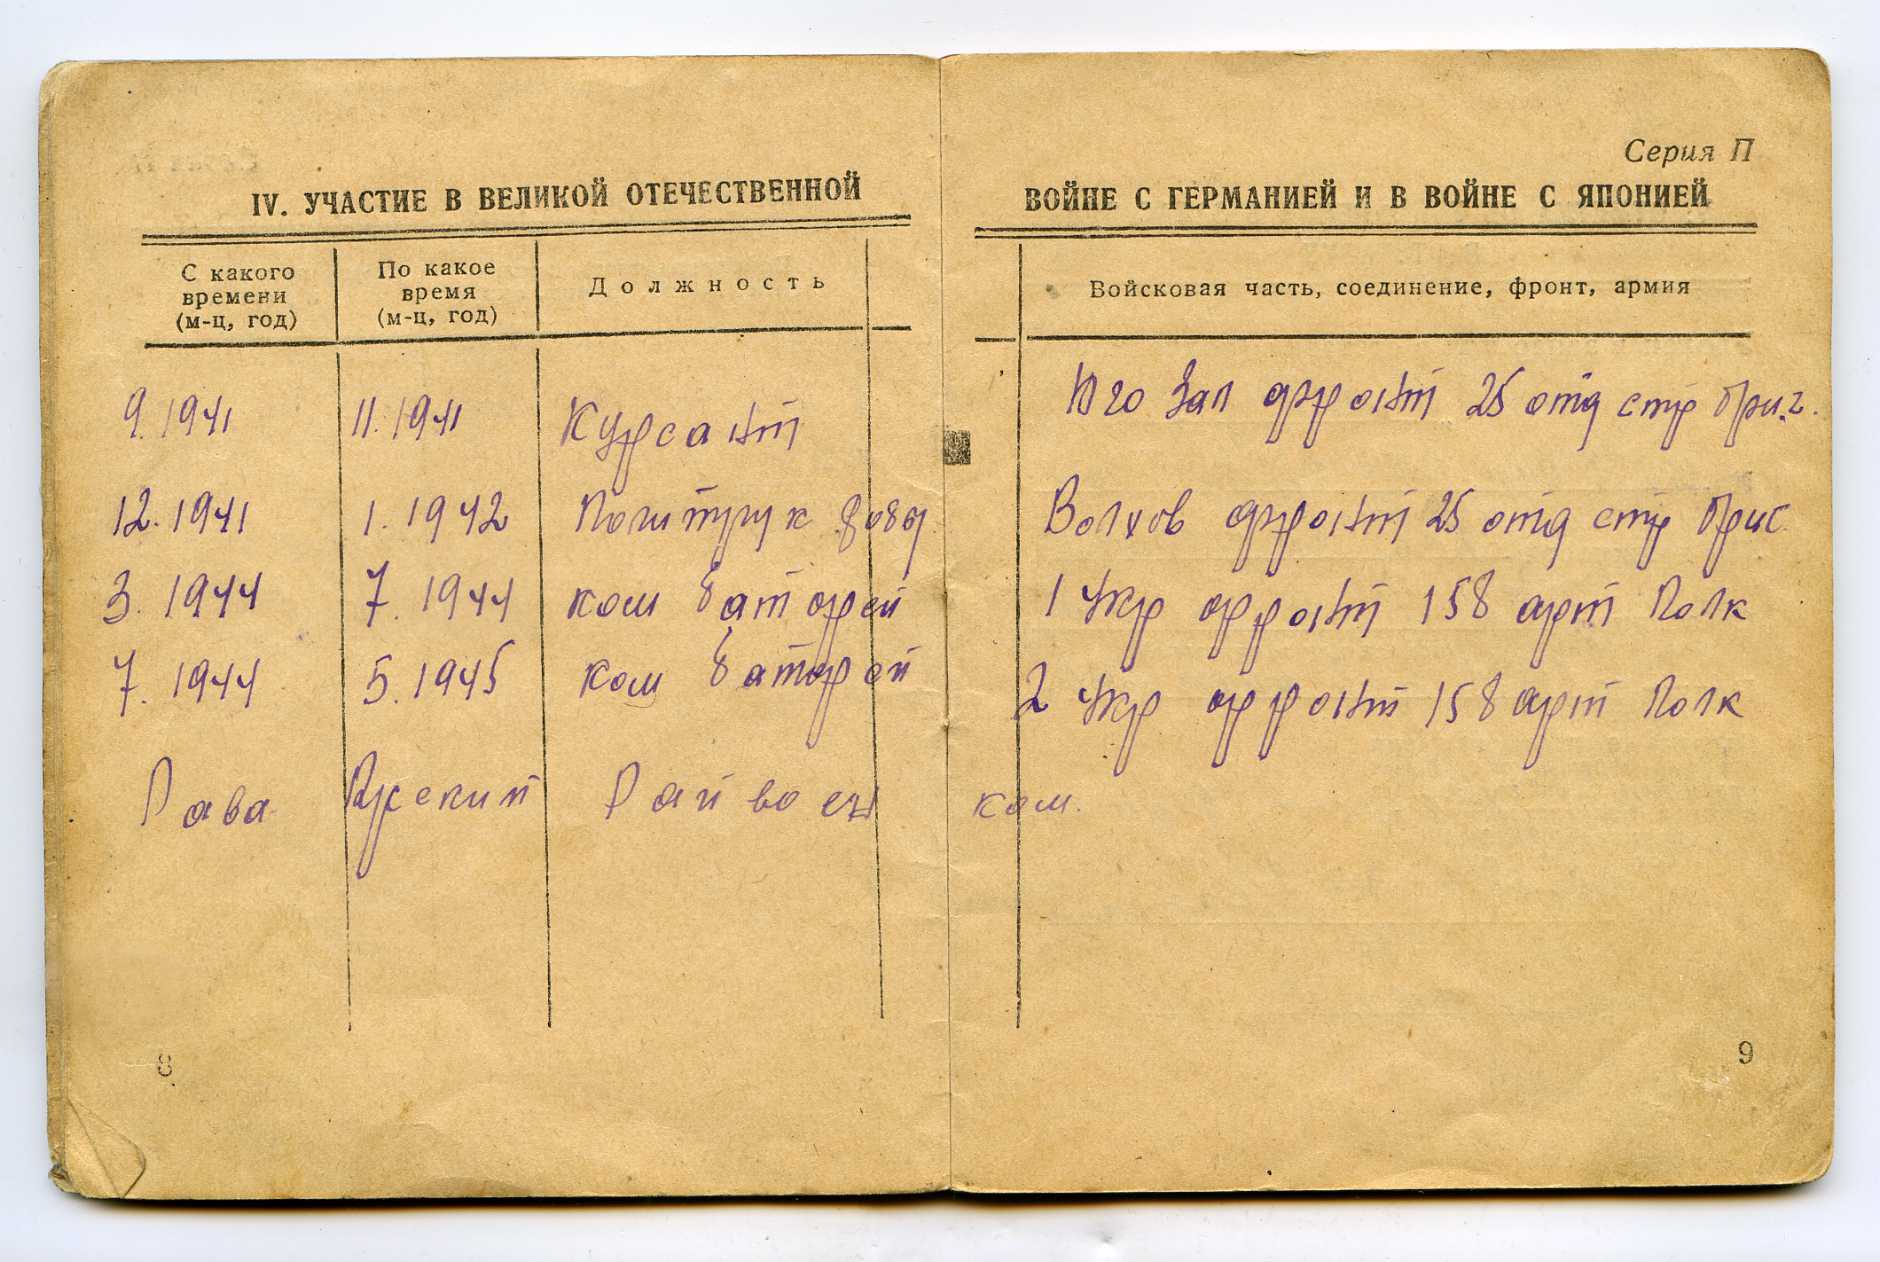 Серия П
IV. УЧАСТИЕ В ВЕЛИКОЙ ОТЕЧЕСТВЕННОЙ ВОЙНЕ С ГЕРМАНИЕЙ И В ВОЙНЕ С ЯПОНИЕЙ
С какого времени (м-ц, год) По какое время (м-ц, год) Должность Войсковая часть, соединение, фронт, армия
9.1941 11.1941 Курсант Юго Зап фронт 25 отд стр бриг.
12.1941 1.1942 Политрук Волхов фронт 25 отд стр бриг
3.1944 7.1944 ком батареи 1 Укр фронт 158 арт Полк
7.1944 5.1945 ком батареи 2 Укр фронт 158 арт Полк
Рава Русский Рай воен ком.
8 9